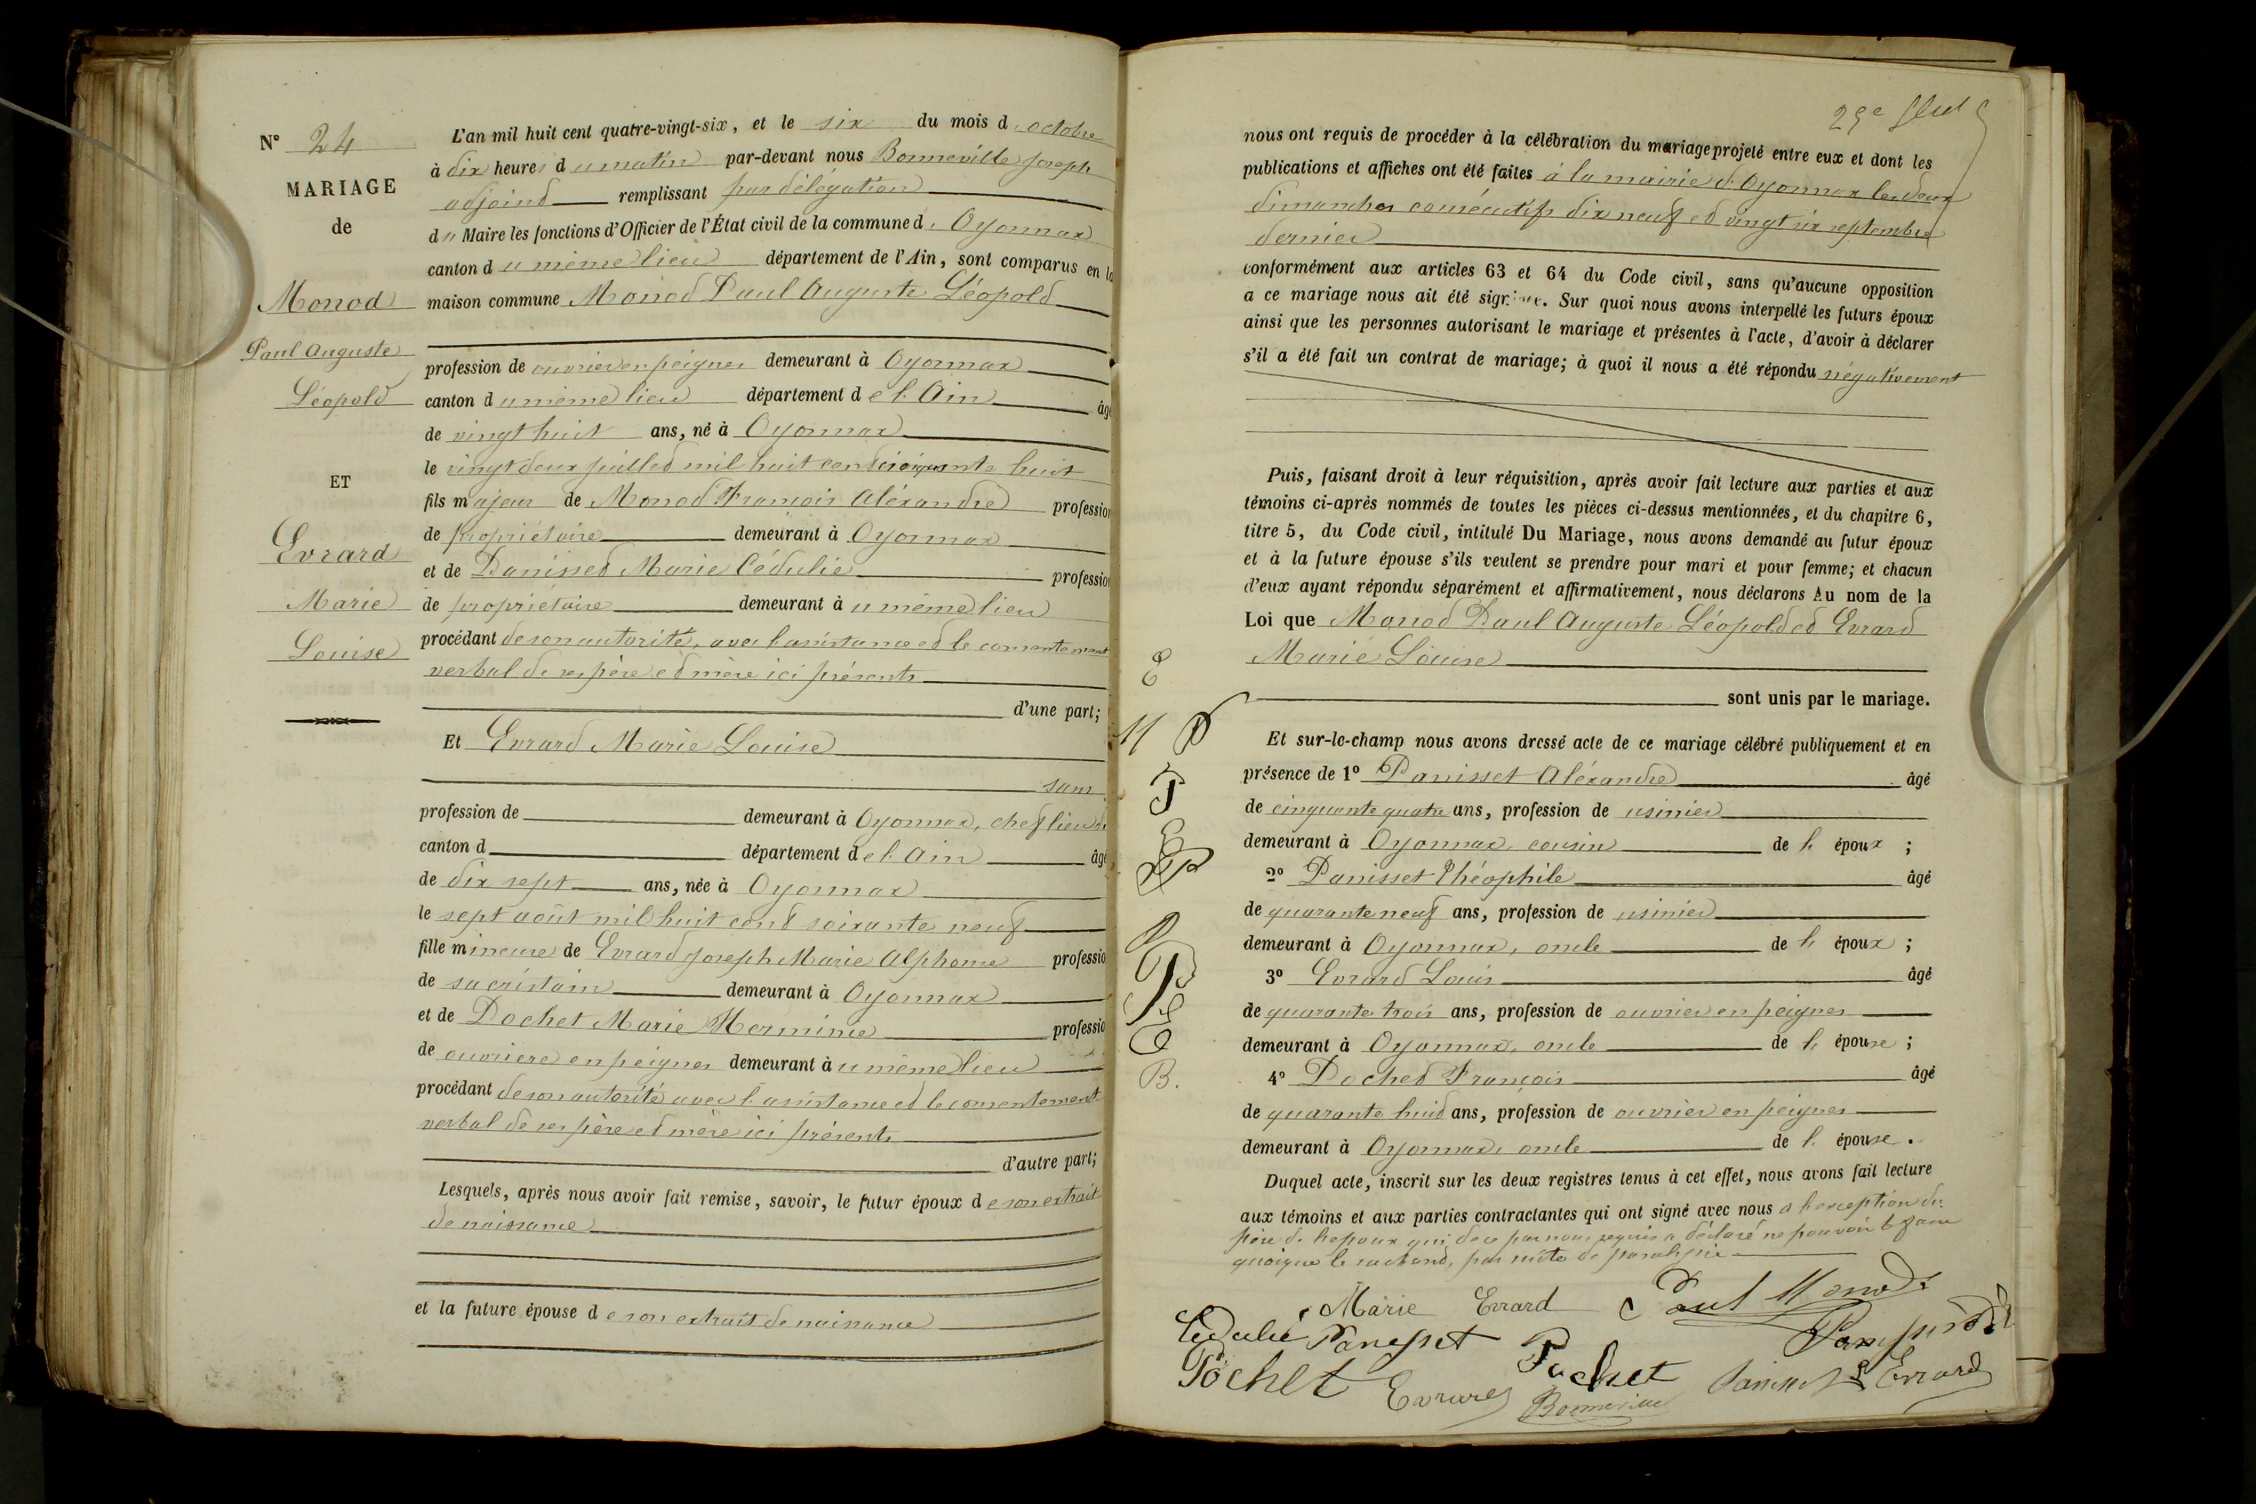 N° 24
MARIAGE
de
Monod
Paul Auguste
Léopold
ET
Evrard
Marie
Louise
L'an mil huit cent quatre-vingt-six, et le six du mois d'octobre
à dix heures du matin par-devant nous Bonneville Joseph
adjoint remplissant par délégation
du Maire les fonctions d'Officier de l'État civil de la commune d'Oyonnax
canton du même lieu département de l'Ain, sont comparus en la
maison commune Monod Paul Auguste Léopold
profession de ouvrier en peignes demeurant à Oyonnax
canton du même lieu département de l'Ain âgé
de vingt huit ans, né à Oyonnax
le vingt deux juillet mil huit cent cinquante huit
fils majeur de Monod François Aléxandre profession
de propriétaire demeurant à Oyonnax
et de Panisset Marie Cédulie profession
de propriétaire demeurant à u même lieu
procédant de son autorité, avec l'assistance et le consentement
verbal de ses père et mère ici présents
d'une part;
Et Evrard Marie Louise
sans
profession de demeurant à Oyonnax, chef lieu de
canton d département de l'Ain âgé
de dix sept ans, née à Oyonnax
le sept août mil huit cent soixante neuf
fille mineure de Evrard Joseph Marie Alphonse professio
de sacristain demeurant à Oyonnax
et de Pochet Marie Hermine professio
de ouvriere en peignes demeurant à u même lieu
procédant de son autorité avec l'assistance et le consentement
verbal de ses père et mère ici présents
d'autre part;
Lesquels, après nous avoir fait remise, savoir, le futur époux de son extrait
de naissance
et la future épouse de son extrait de naissance
nous ont requis de procéder à la célébration du mariage projeté entre eux et dont les
publications et affiches ont été faites à la mairie d'Oyonnax les deux
dimanches consécutifs dix neuf et vingt six septembre
dernier
conformément aux articles 63 et 64 du Code civil, sans qu'aucune opposition
a ce mariage nous ait été signifiée. Sur quoi nous avons interpellé les futurs époux
ainsi que les personnes autorisant le mariage et présentes à l'acte, d'avoir à déclarer
s'il a été fait un contrat de mariage; à quoi il nous a été répondu négativement
Puis, faisant droit à leur réquisition, après avoir fait lecture aux parties et aux
témoins ci-après nommés de toutes les pièces ci-dessus mentionnées, et du chapitre 6,
titre 5, du Code civil, intitulé Du Mariage, nous avons demandé au futur époux
et à la future épouse s'ils veulent se prendre pour mari et pour femme; et chacun
d'eux ayant répondu séparément et affirmativement, nous déclarons Au nom de la
Loi que Monod Paul Auguste Léopold et Evrard
Marie Louise
sont unis par le mariage.
Et sur-le-champ nous avons dressé acte de ce mariage célébré publiquement et en
présence de 1° Panisset Aléxandre âgé
de cinquante quatre ans, profession de usinier
demeurant à Oyonnax, cousin de l'époux ;
2° Panisset Théophile âgé
de quarante neuf ans, profession de usinier
demeurant à Oyonnax, oncle de l'époux ;
3° Evrard Louis âgé
de quarante trois ans, profession de ouvrier en peignes
demeurant à Oyonnax, oncle de l'épouse ;
4° Pochet François âgé
de quarante huit ans, profession de ouvrier en peignes
demeurant à Oyonnax, oncle de l'épouse.
Duquel acte, inscrit sur les deux registres tenus à cet effet, nous avons fait lecture
aux témoins et aux parties contractantes qui ont signé avec nous a l'exception du
père de l'epoux qui de ce par nous requis a déclaré ne pouvoir le faire
quoique le sachant, par suite de paralysie
Marie Evrard Paul Monod
Cédulie Panisset
Pochet Evrard Pochet Bonneville Panisset L Evrard